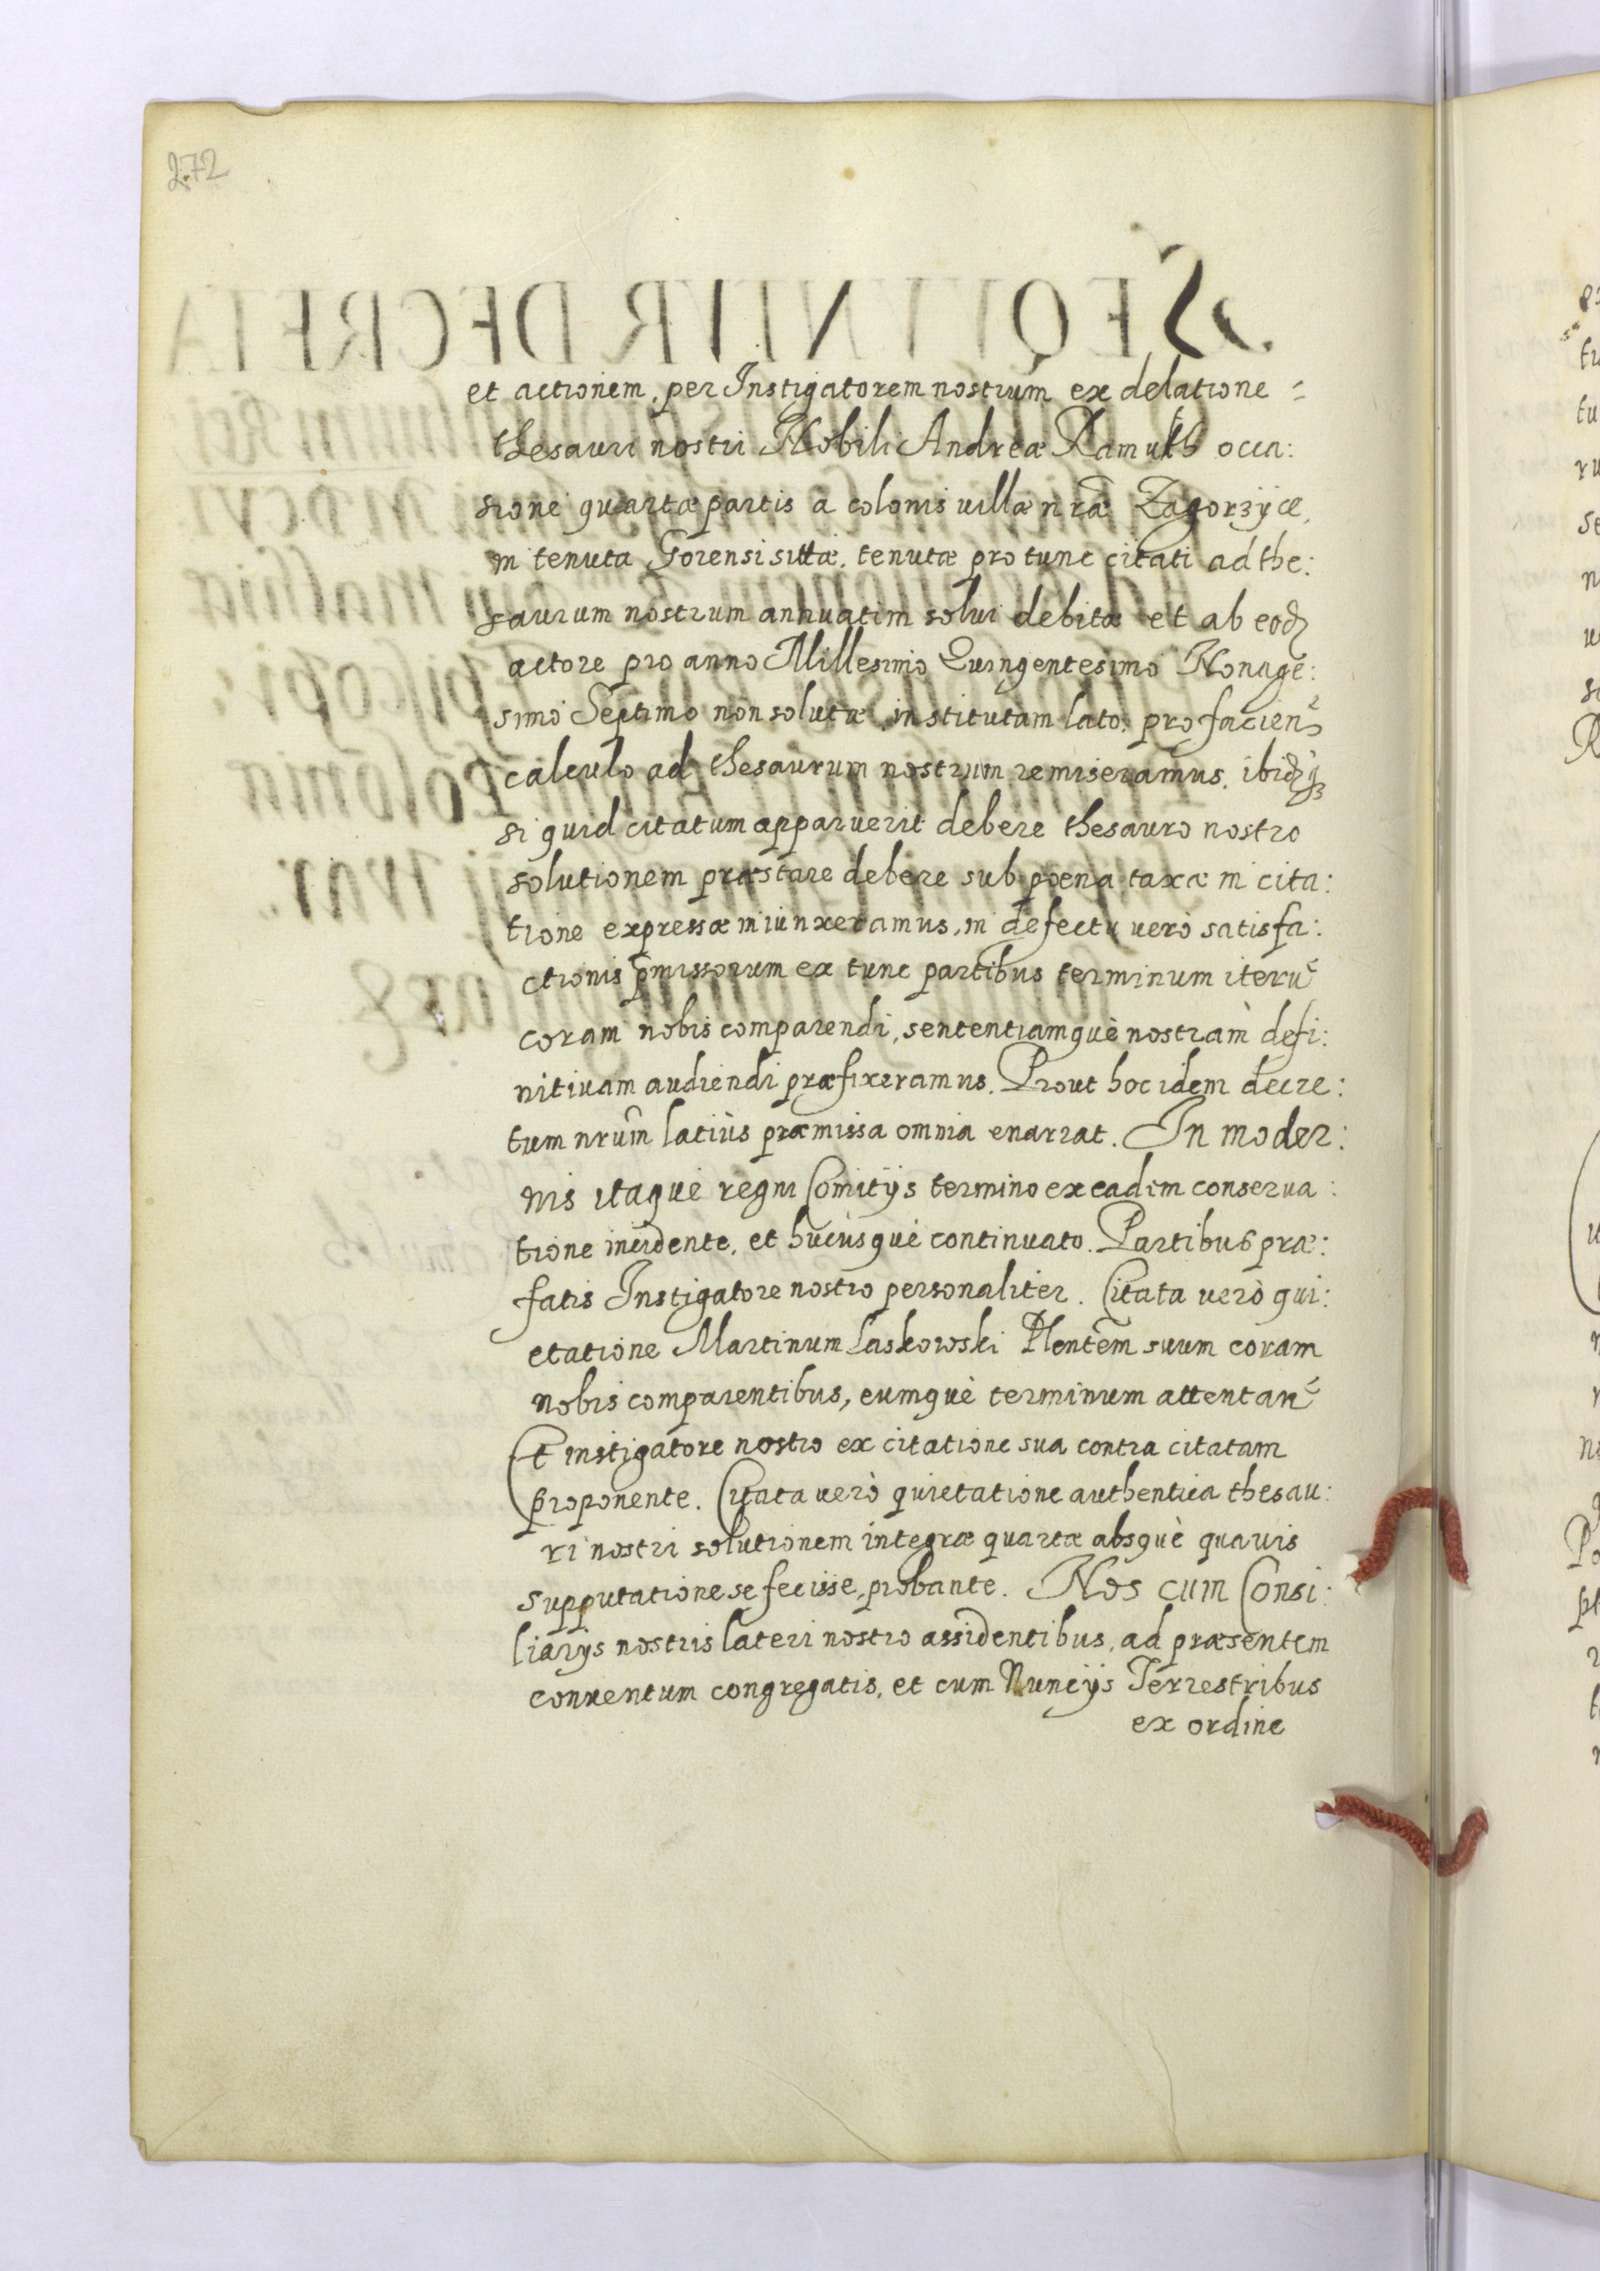 272
et actionem, per Instigatorem nostrum ex delatione =
thesauri nostri Nobili Andreæ Ramulth occa:
sione quartæ partis a colonis villæ nr̃æ Zagorzÿce,
in tenuta Gorensi sittæ, tenutæ pro tunc citati ad the:
saurum nostrum annuatim solui debitæ et ab eodꝫ
actore pro anno Millesimo Quingentesimo Nonage:
simo Septimo non solutæ, institutam lato, pro facien̄
calculo ad thesaurum nostrum remiseramus, ibidꝫqꝫ
si quid citatum apparuerit debere thesauro nostro
solutionem præstare debere sub pœna taxæ in cita:
tione expressæ iniunxeramus, in defectu verò satisfa:
ctionis p̃missorum ex tunc partibus terminum iterū
coram nobis comparendi, sententiamquè nostram defi:
nitiuam audiendi præfixeramus. Prout hoc idem decre:
tum nrũm latiùs præmissa omnia enarrat. In moder:
nis itaquè regni Comitijs termino ex eadem conserua:
tione incidente, et hucusquè continuato. Partibus præ:
fatis Instigatore nostro personaliter. Citata verò qui:
etatione Martinum Laskowski Plentẽm suum coram
nobis comparentibus, eumquè terminum attentan̄
Et instigatore nostro ex citatione sua contra citatam
proponente. Citata verò quietatione authentica thesau:
ri nostri solutionem integræ quartæ absquè quauis
supputatione se fecisse, probante. Nos cum Consi:
liarijs nostris lateri nostro assidentibus, ad præsentem
conuentum congregatis, et cum Nuncijs Terrestribus
ex ordine